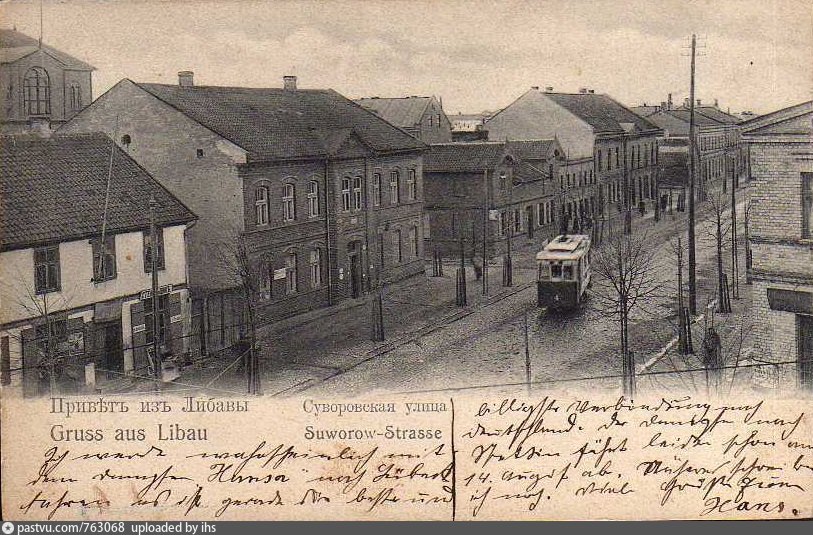 Привѣтъ изъ Либавы
Gruss aus Libau
Суворовская улица
Suworow-Strasse
Ich werde wahrscheinlich mit
dem Hansa nach Lübeck
fahren es ist gerade die beste und
billigste Verbindung nach
Deutschland. der nach
Stettin fährt leider schon am
14. August ab. schreibe
ich noch. Viele Grüsse
Hans.
pastvu.com/763068 uploaded by ihs